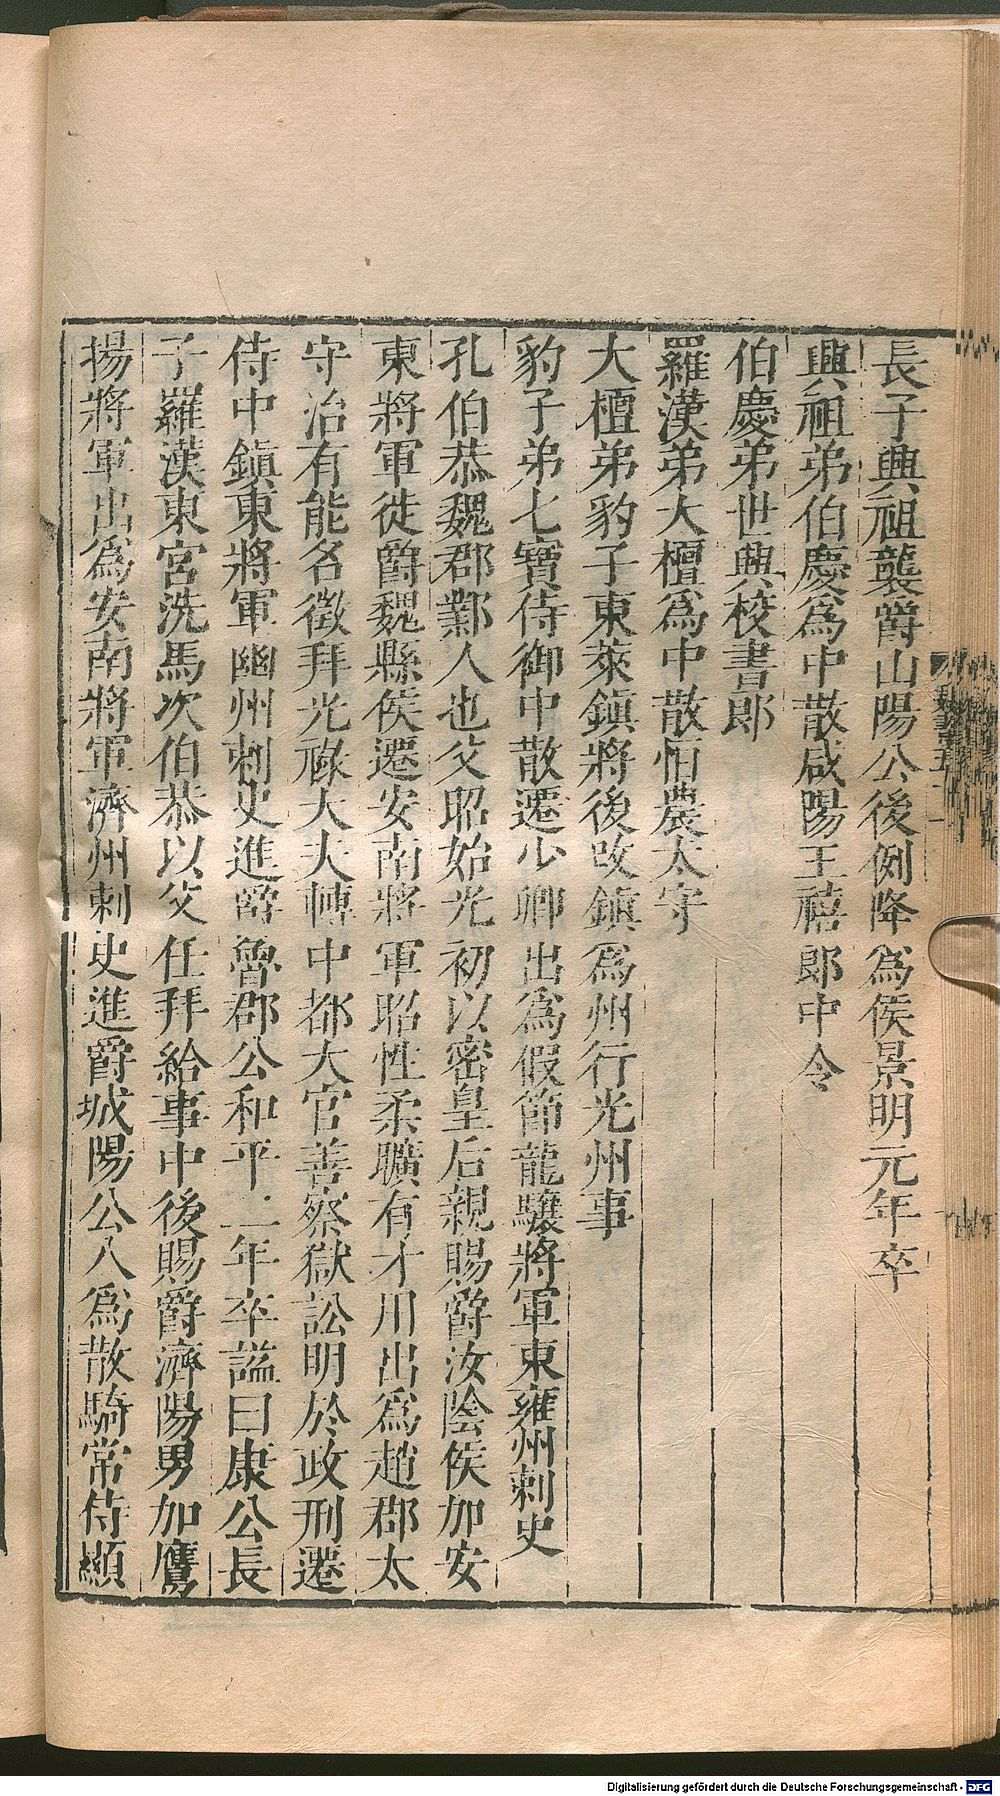 長子興祖襲爵山陽公後例降爲侯景明元年卒
興祖弟伯慶爲中散咸陽王禧郎中令
伯慶弟世興校書郎
羅漢弟大檀爲中散恒農太守
大檀弟豹子東萊鎮將後改鎮爲州行光州事
豹子弟七寶侍御中散遷少卿出爲假節龍驤將軍東雍州刺史
孔伯恭魏郡鄴人也父昭始光初以密皇后親賜爵汝陰侯加安
東將軍徙爵魏縣侯遷安南將軍昭性柔曠有才用出爲趙郡太
守治有能名徵拜光祿大夫轉中都大官善察獄訟明於政刑遷
侍中鎮東將軍幽州刺史進爵魯郡公和平二年卒諡曰康公長
子羅漢東宮洗馬次伯恭以父任拜給事中後賜爵濟陽男加鷹
揚將軍出爲安南將軍濟州刺史進爵城陽公入爲散騎常侍顯
Digitalisierung gefördert durch die Deutsche Forschungsgemeinschaft - DFG